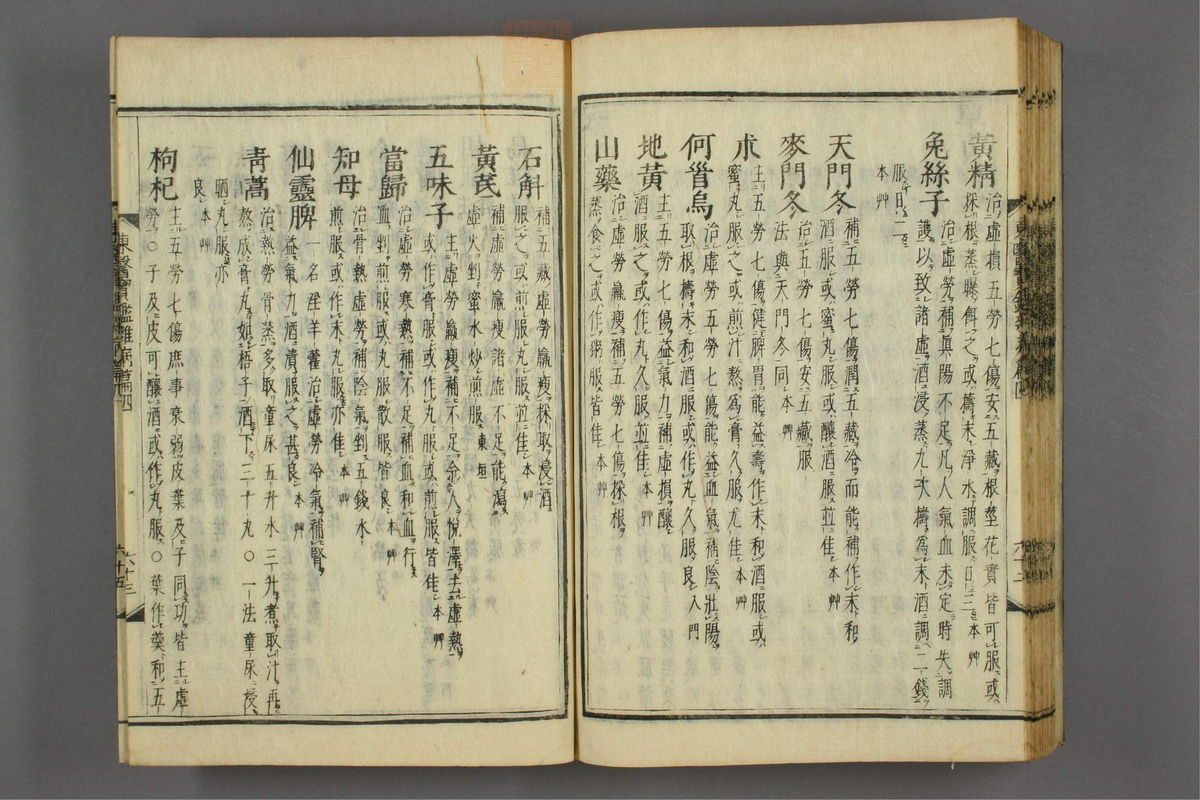 黃精
治虛損五勞七傷安五藏根莖花實皆可服或
採根蒸曝餌之或擣末淨水調服日三本艸
兔絲子
治虛勞補眞陽不足凡人氣血未定時失調
護以致諸虛酒浸蒸九次擣爲末酒調二錢
服日二
本艸
天門冬
補五勞七傷潤五藏冷而能補作末和
酒服或蜜丸服或釀酒服並佳本艸
麥門冬
治五勞七傷安五藏服
法與天門冬同本艸
朮
主五勞七傷健脾胃能益壽作末和酒服或
蜜丸服之或煎汁熬爲膏久服尤佳本艸
何首烏
治虛勞五勞七傷能益血氣補陰壯陽
取根擣末和酒服或作丸久服良入門
地黃
主五勞七傷益氣力補虛損釀
酒服或蒸作丸久服並佳本艸
山藥
治虛勞羸瘦補五勞七傷採根
蒸食之或作粥服皆佳本艸
石斛
補五藏虛勞羸瘦採取浸酒
服之或煎服丸服並佳本艸
黃芪
補虛勞羸瘦諸虛不足能瀉
虛火剉蜜水炒煎服東垣
五味子
主虛勞羸瘦補不足令人悅澤去虛熱
或作膏服或作丸服或煎服皆佳本艸
當歸
治虛勞寒熱補不足補血和血行
血剉煎服或丸服散服皆良本艸
知母
治骨熱虛勞補陰氣剉五錢水
煎服或作末丸服亦佳本艸
仙靈脾
一名淫羊藿治虛勞冷氣補腎
益氣力酒漬服之甚良本艸
靑蒿
治熱勞骨蒸多取童尿五升水三升煮取汁再
熬成膏丸如梧子酒下三十丸○一法童尿浸
晒丸服亦
良本艸
枸杞
主五勞七傷庶事衰弱皮葉及子同功皆主虛
勞○子及皮可釀酒或作丸服○葉作羹和五
東醫寶鑑雜病篇四
六十三